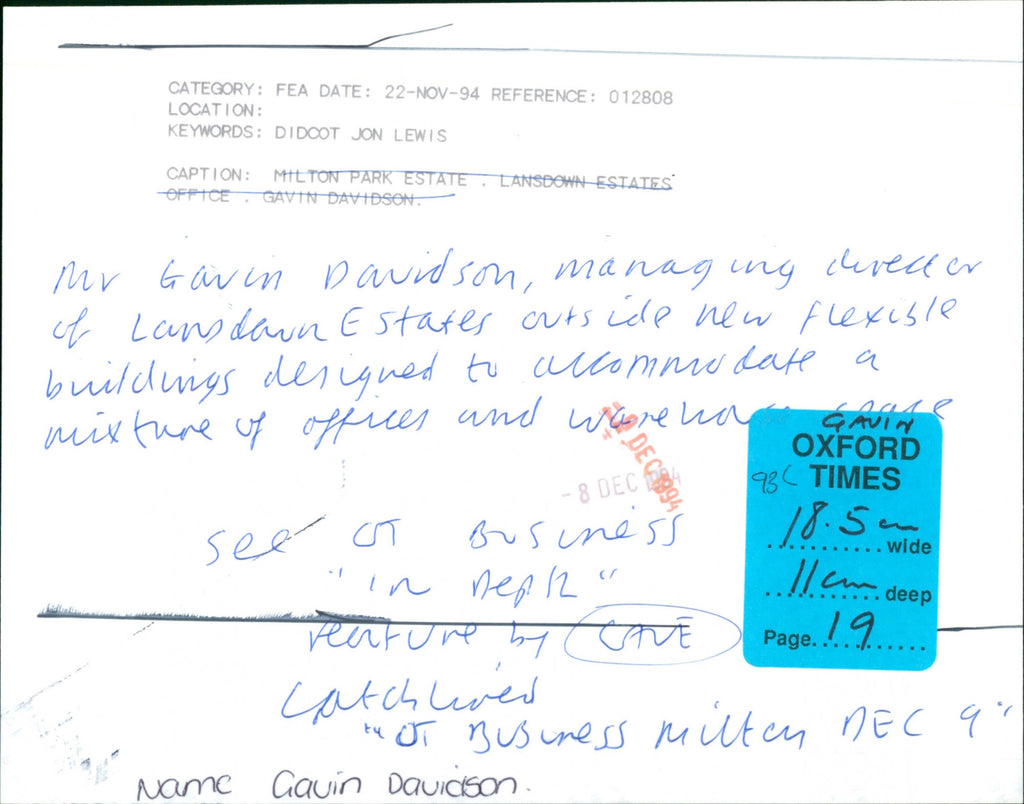 CATEGORY: FEA DATE: 22-NOV-94 REFERENCE: 012808
LOCATION:
KEYWORDS: DIDCOT JON LEWIS
CAPTION: MILTON PARK ESTATE . LANSDOWN ESTATES
OFFICE . GAVIN DAVIDSON.
Mr Gavin Davidson, managing director
of Lansdown Estates outside new flexible
buildings designed to accommodate a
mixture of offices and warehouse space
- 8 DEC 1994
DEC 1994
GAVIN
OXFORD
TIMES
18.5 cm
wide
11cm deep
Page. 19
see OT Business
"in Depth"
feature by CAVE
Catchlined
"OT Business Milton DEC 9"
Name Gavin Davidson.